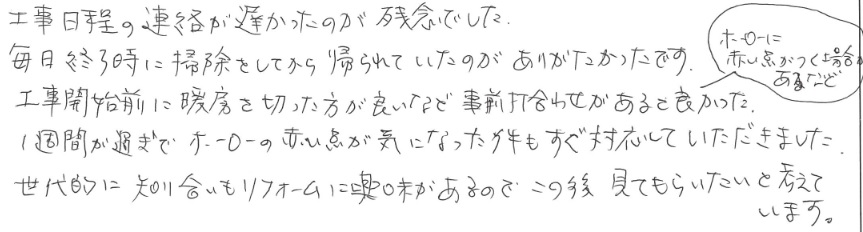 工事日程の連絡が遅かったのが残念でした.
毎日終了時に掃除をしてから帰られていたのがありがたかったです.
ホーローに
赤い点がつく場合が
あるなど
工事開始前に暖房を切った方が良いなど事前打合わせがあると良かった.
1週間が過ぎてホーローの赤い点が気になった件もすぐ対応していただきました.
世代的に知り合いもリフォームに興味があるのでこの後見てもらいたいと考えて
います。